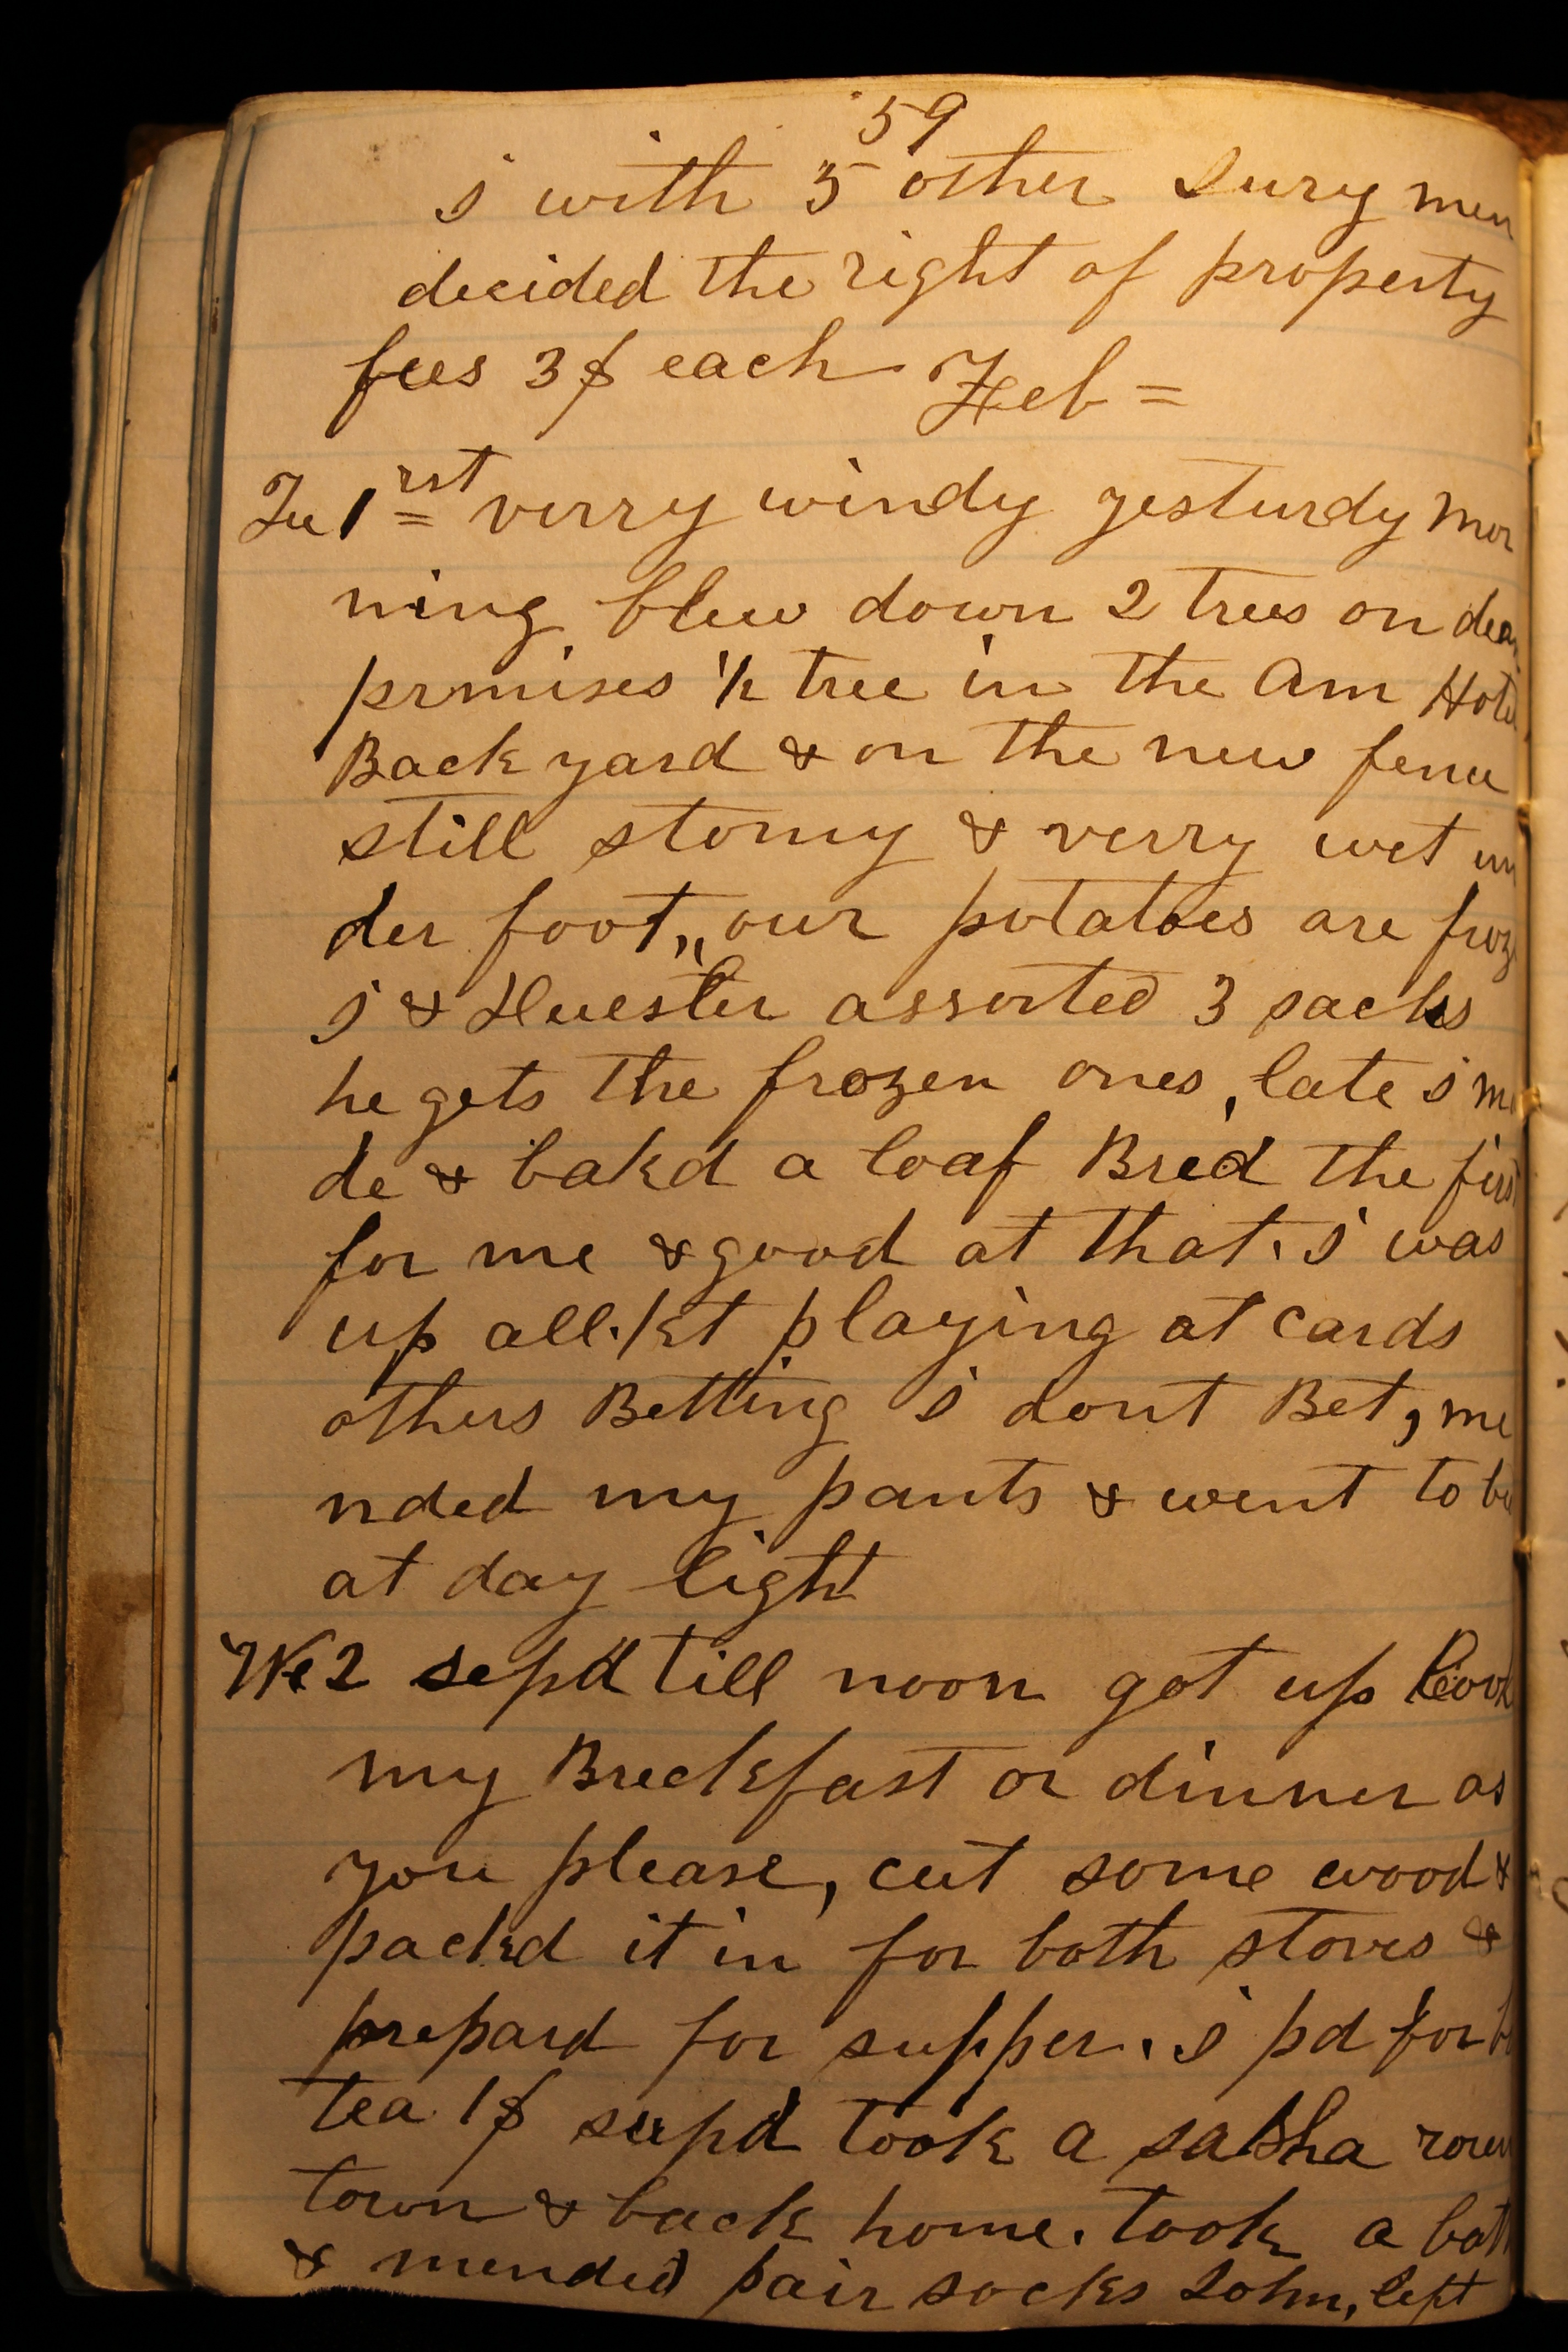 59
i with 5 other Jury men
decided the right of property
fees 3$ each Feb =
Tu 1rst verry windy yesturdy mor
ning blew down 2 trees on
prmises 1/2 tree in the Am Hotel
Back yard & on the new fence
still stormy & verry wet un
der foot,, our potatoes are froze
i & Huester assorted 3 sacks
he gets the frozen ones, late i ma
de & bakd a loaf Bred the first
for me & good at that. i was
up all.kt playing at cards
others Betting i dont Bet, me
nded my pants & went to bed
at day light
We 2 sepd till noon got up Cook
my Breckfast or dinner as
you please, cut some wood &
packd it in for both stoves &
prepard for supper. i pd for
tea 1$ supd took a pasha roun
town & back home. took a bath
& mended pair socks John, left